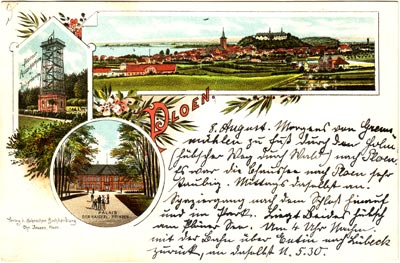 PLOEN.
PALAIS
DER KAISERL. PRINZEN.
8. August. Morgens von Grems-
mühlen zu Fuß durch den Holm
(hübscher Weg durch Wald) nach Ploen.
Es war die Chaussee nach Ploen sehr
staubig. Mittags daselbst an.
Spaziergang nach dem Schloß hinauf
und im Park. Liegt Beides hübsch
am Plöner See. Um 4 Uhr Nachm.
mit der Bahn über Eutin nach Lübeck
zurück, an daselbst N. 5.30.